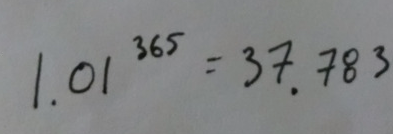 1.01³⁶⁵ = 37.783